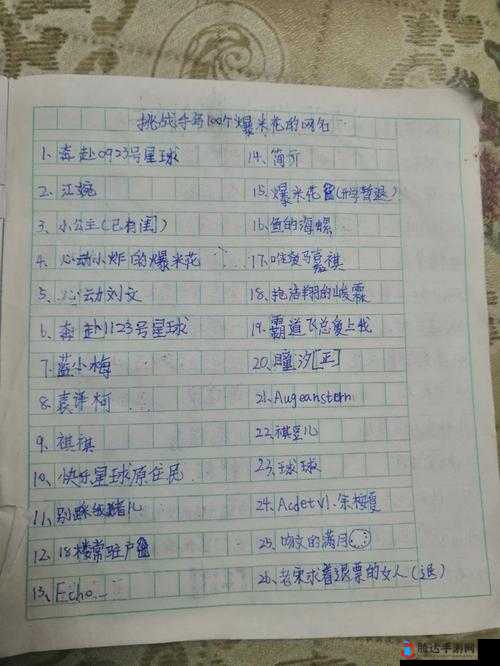 挑战手写100个爆米花的网名
1. 奔赴0923号星球
2. 江婉
3. 小公主(已有闺)
4. 心动小炸的爆米花
5. 心动刘文
6. 奔赴1123号星球
7. 蓝小梅
8. 袁译柯
9. 祺祺
10. 快乐星球原住民
11. 别踩
12. 18楼常驻户
13. Echo...
14. 简亓
15. 爆米花(开学暂退)
16. 鱼的海螺
17. 唯爱马嘉祺
18. 抢浩翔的峻霖
19. 霸道飞总爱上我
20. 瞳汐[正]
21. Augeanstern
22. 祺昱儿
23. 球球
24. Acdetvl.余
25. 的满月
26. 老宋求着退票的女人(退)
腾达手游网